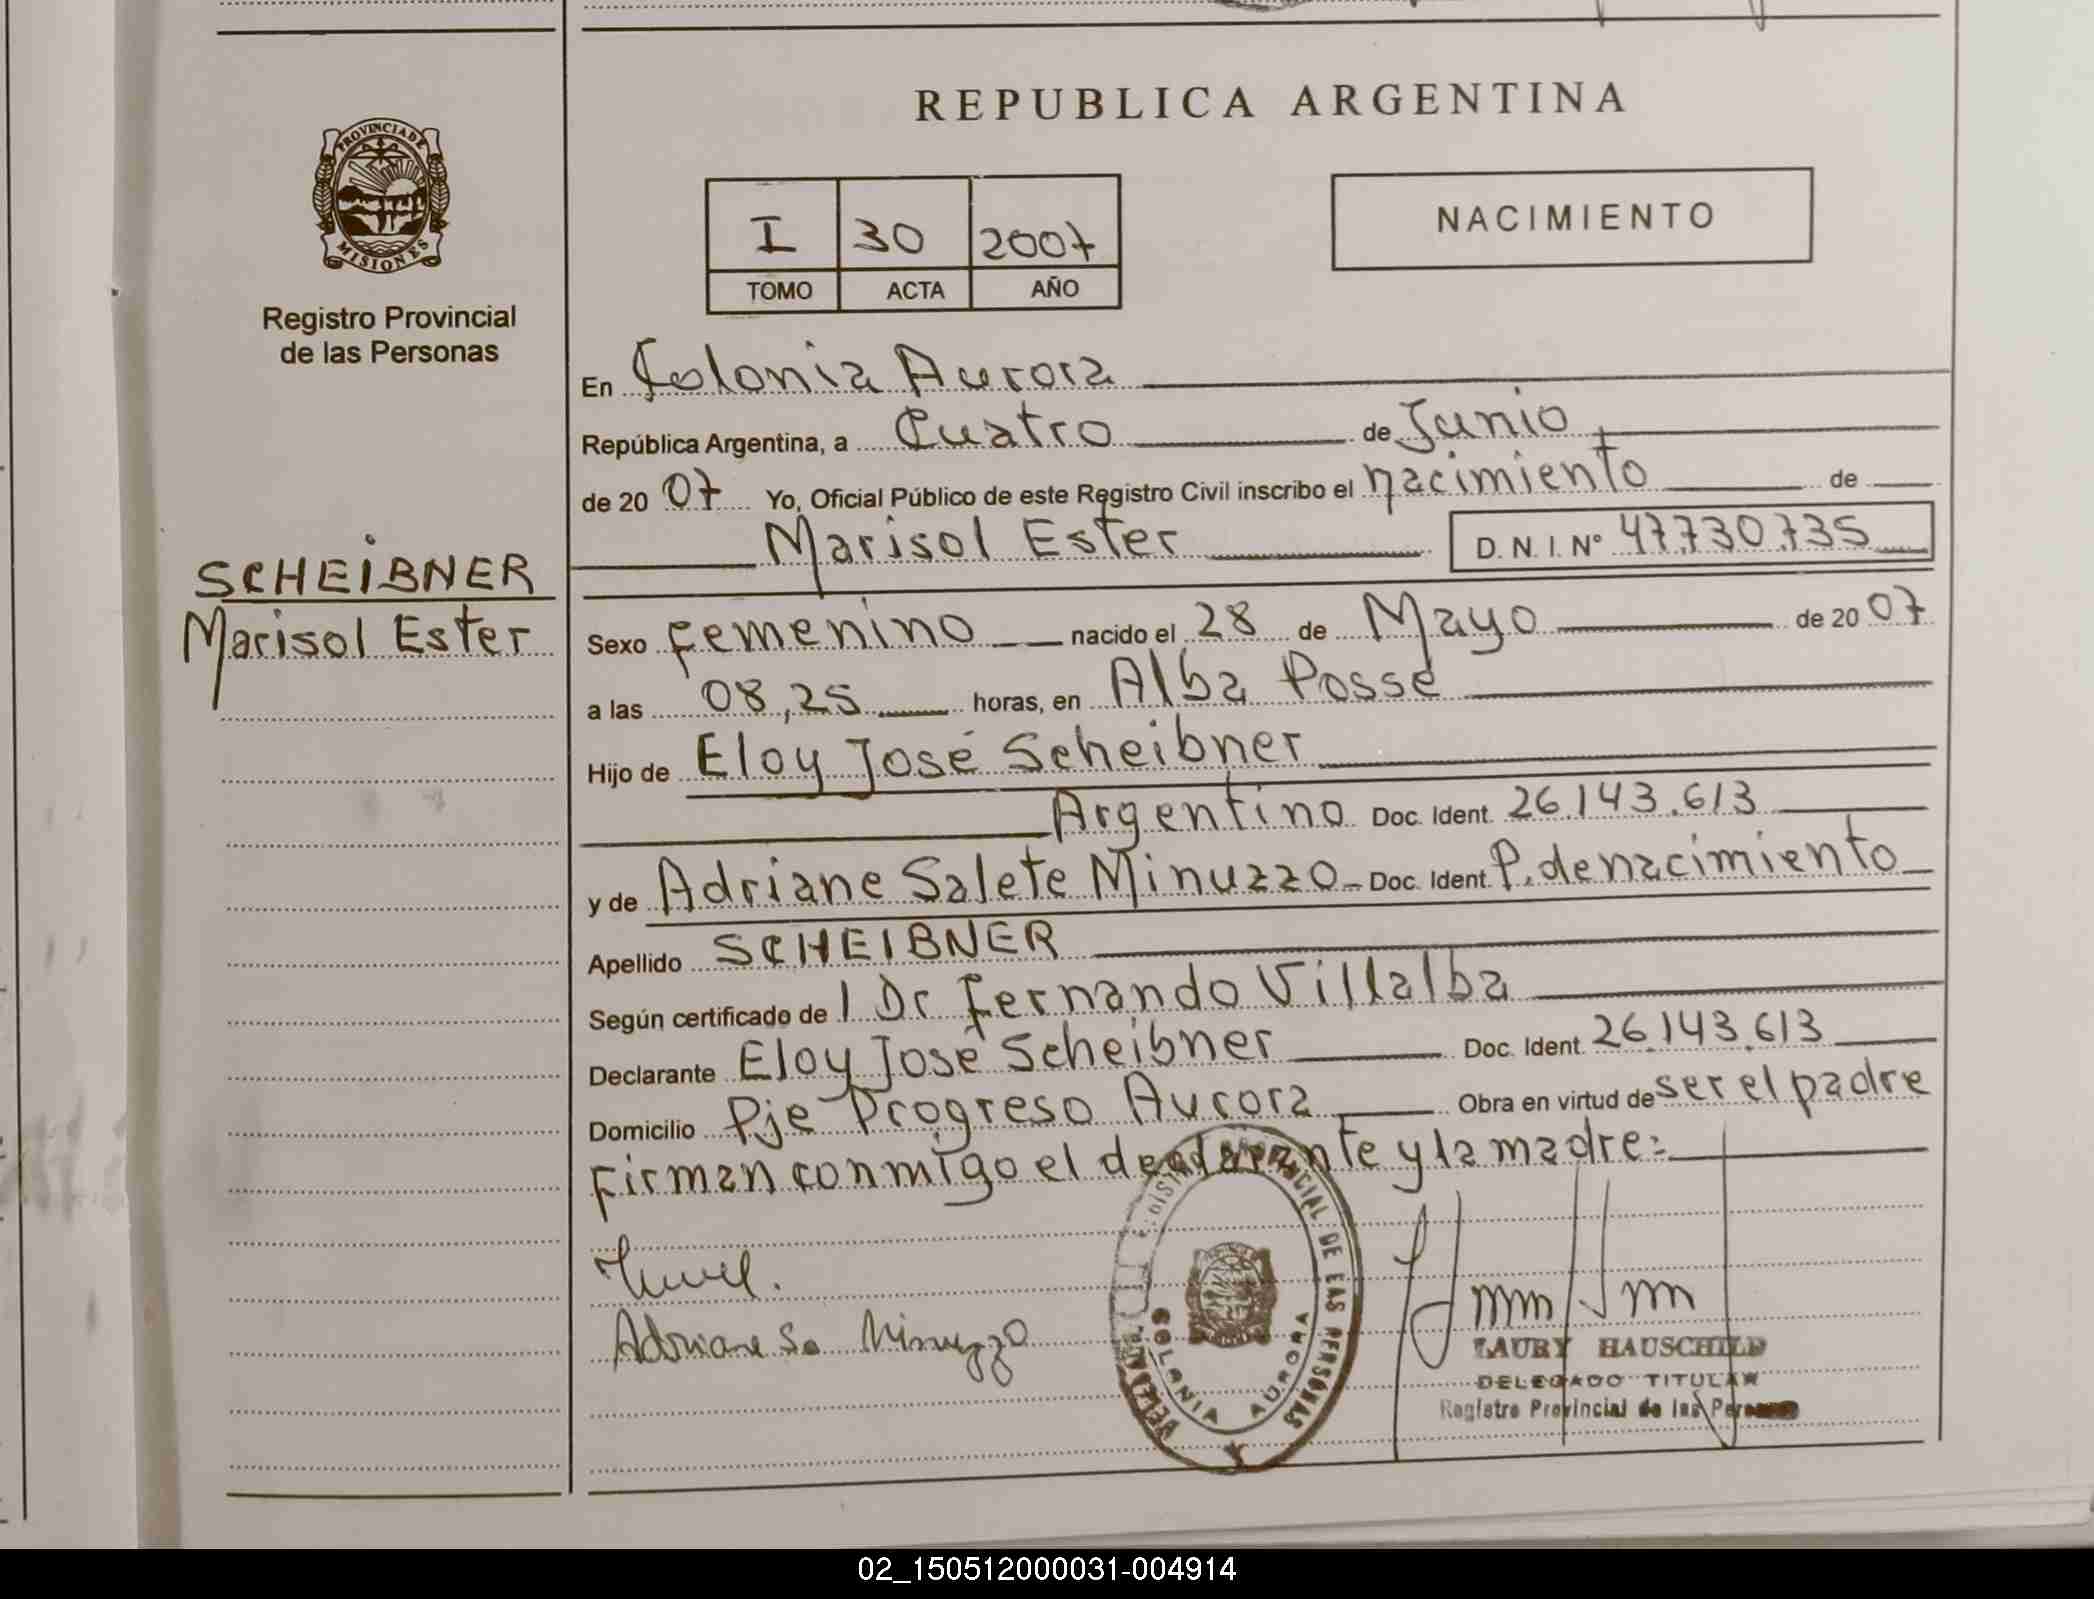 REPUBLICA ARGENTINA
PROVINCIA DE
MISIONES
Registro Provincial
de las Personas
NACIMIENTO
I 30 2007
TOMO ACTA AÑO
En Colonia Aurora
República Argentina, a Cuatro de Junio
de 20 07 Yo, Oficial Público de este Registro Civil inscribo el nacimiento de
Marisol Ester D. N. I. Nº 47.730.735
SCHEIBNER
Marisol Ester
Sexo femenino nacido el 28 de Mayo de 20 07
a las 08,25 horas, en Alba Posse
Hijo de Eloy José Scheibner
Argentino Doc. Ident. 26.143.613
y de Adriane Salete Minuzzo Doc. Ident. P. de nacimiento
Apellido SCHEIBNER
Según certificado de l Dr Fernando Villalba
Declarante Eloy José Scheibner Doc. Ident. 26.143.613
Domicilio Pje Progreso Aurora Obra en virtud de ser el padre
Firman conmigo el declarante y la madre:
Adriane Sa Minuzzo
DE LAS PERSONAS
COLONIA AURORA
LAURY HAUSCHILD
DELEGADO TITULAR
Registro Provincial de las Personas
02_150512000031-004914